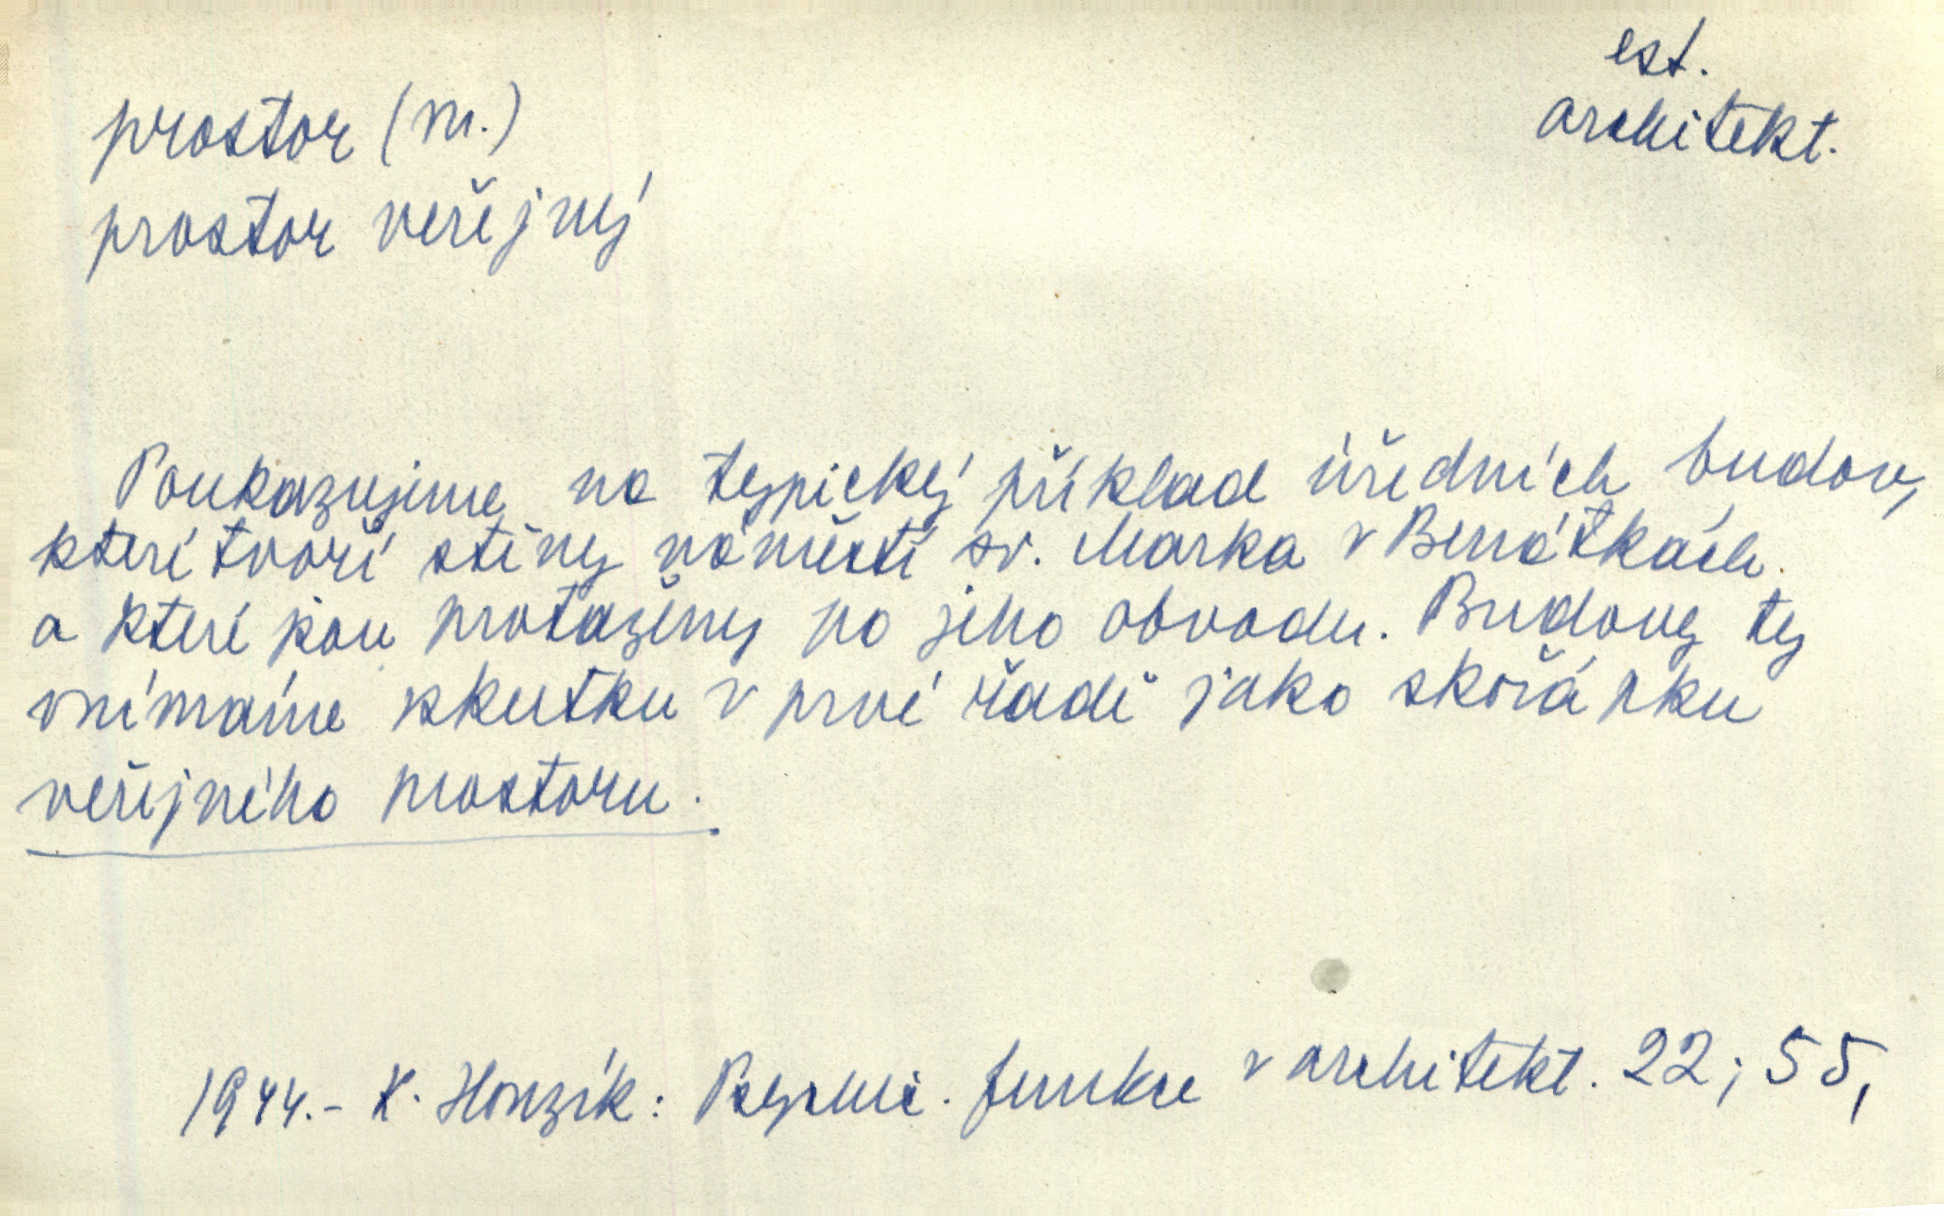 est.
architekt.
prostor (m.)
prostor veřejný
Poukazujeme na typický příklad úředních budov,
které tvoří stěny náměstí sv. Marka v Benátkách
a které jsou protaženy po jeho obvodu. Budovy ty
vnímáme skutku v prvé řadě jako skořápku
veřejného prostoru.
1944.- K. Honzík: Psychic. funkce v architekt. 22; 55,